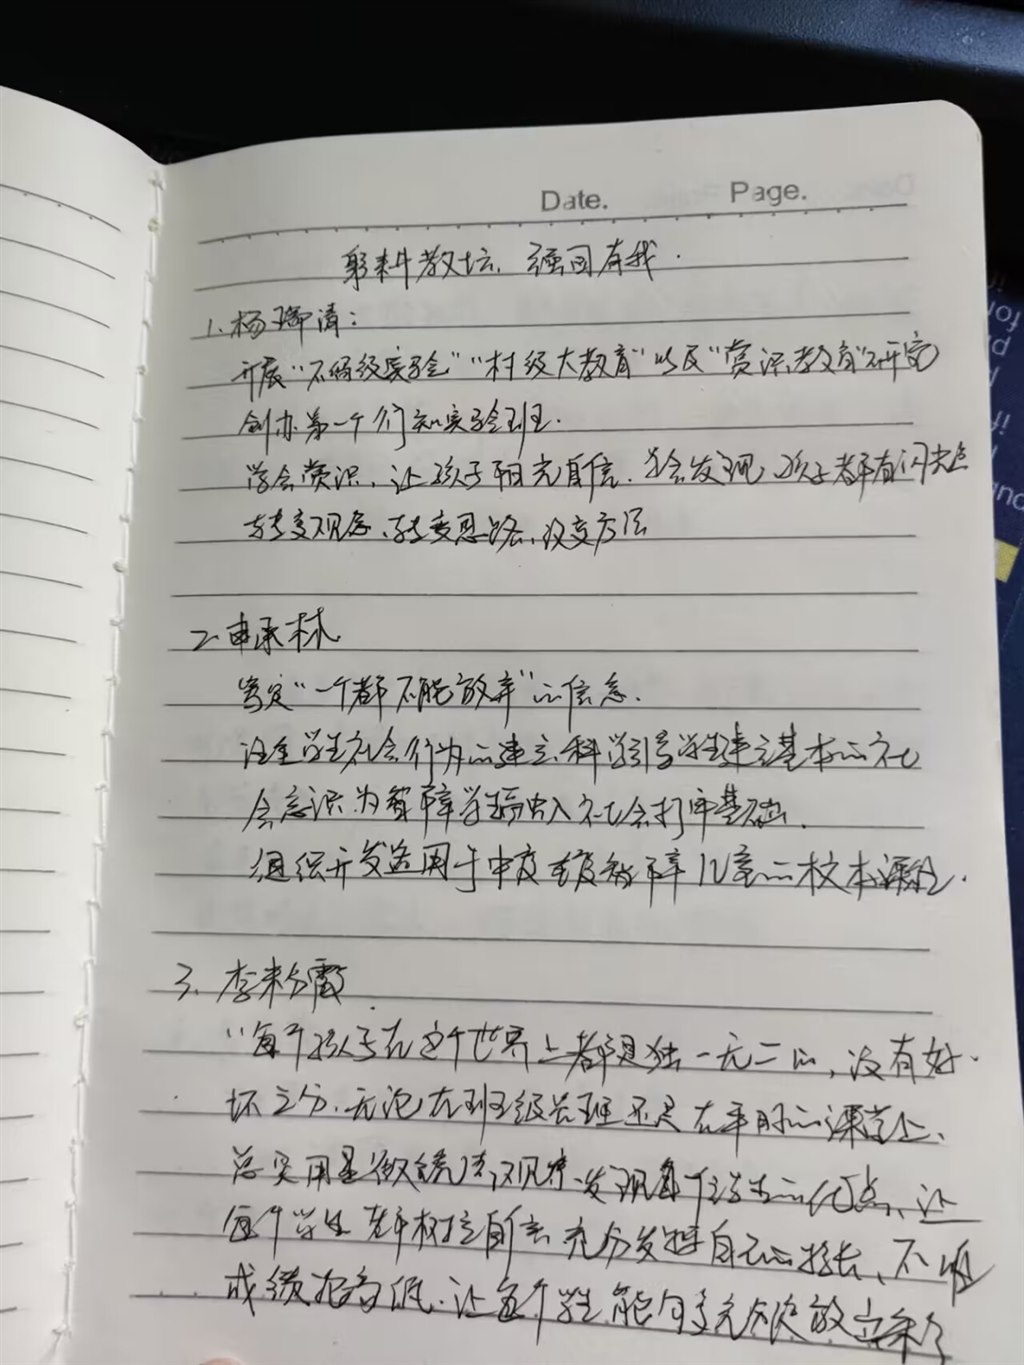 Date. Page.
躬耕教坛、强国有我.
1.杨瑞清:
开展"不留级实验""村级大教育"以及"赏识教育"研究
创办第一个行知实验班.
学会赏识,让孩子阳光自信.学会发现,孩子都有闪光点
转变观念、转变思路、改变方法
2.申承林
坚定"一个都不能放弃"的信念.
注重学生社会行为的建立,科学引导学生建立基本的社
会意识为智障学生融入社会打牢基础.
组织开发适用于中度重度智障儿童的校本课程.
3.李来
"每个孩子在这个世界上都是独一无二的,没有好
坏之分.无论在班级管理还是在平时的课堂上、
总 用 观察、发现每个学生的优点、让
每个学生都树立自信充分发挥自己的特长、不以
成绩论高低.让每个学生能